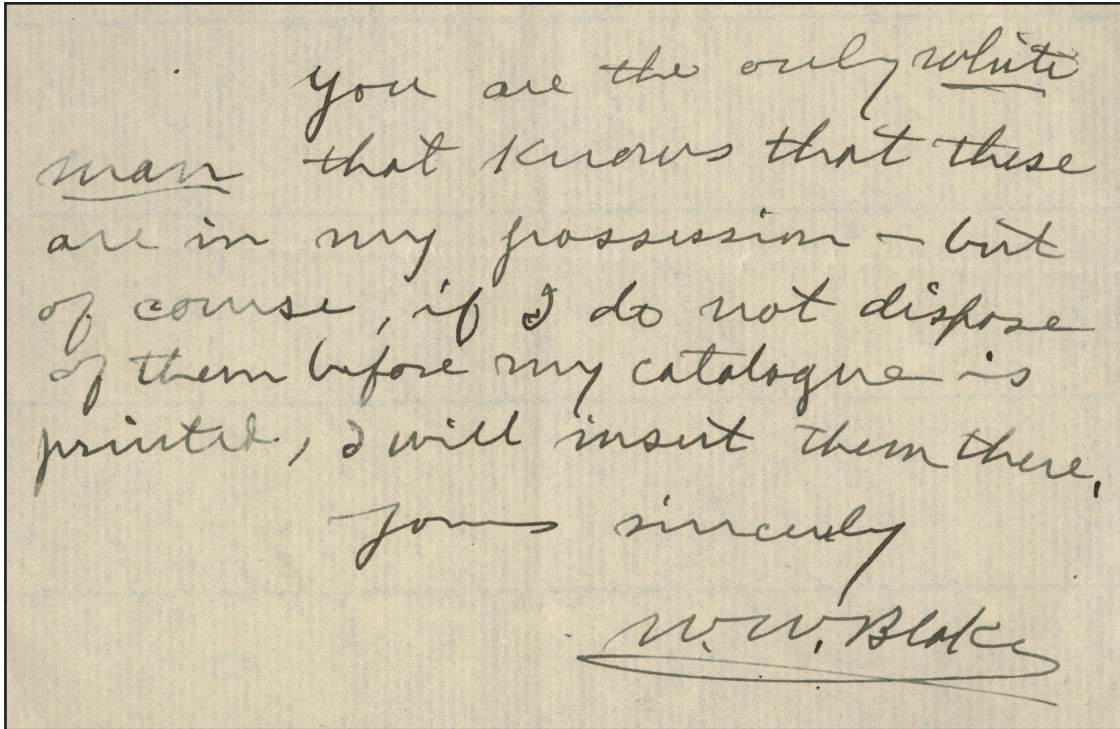 You are the only white
man that knows that these
are in my possession – but
of course, if I do not dispose
of them before my catalogue is
printed, I will insert them there.
Yours sincerely
W. W. Blake